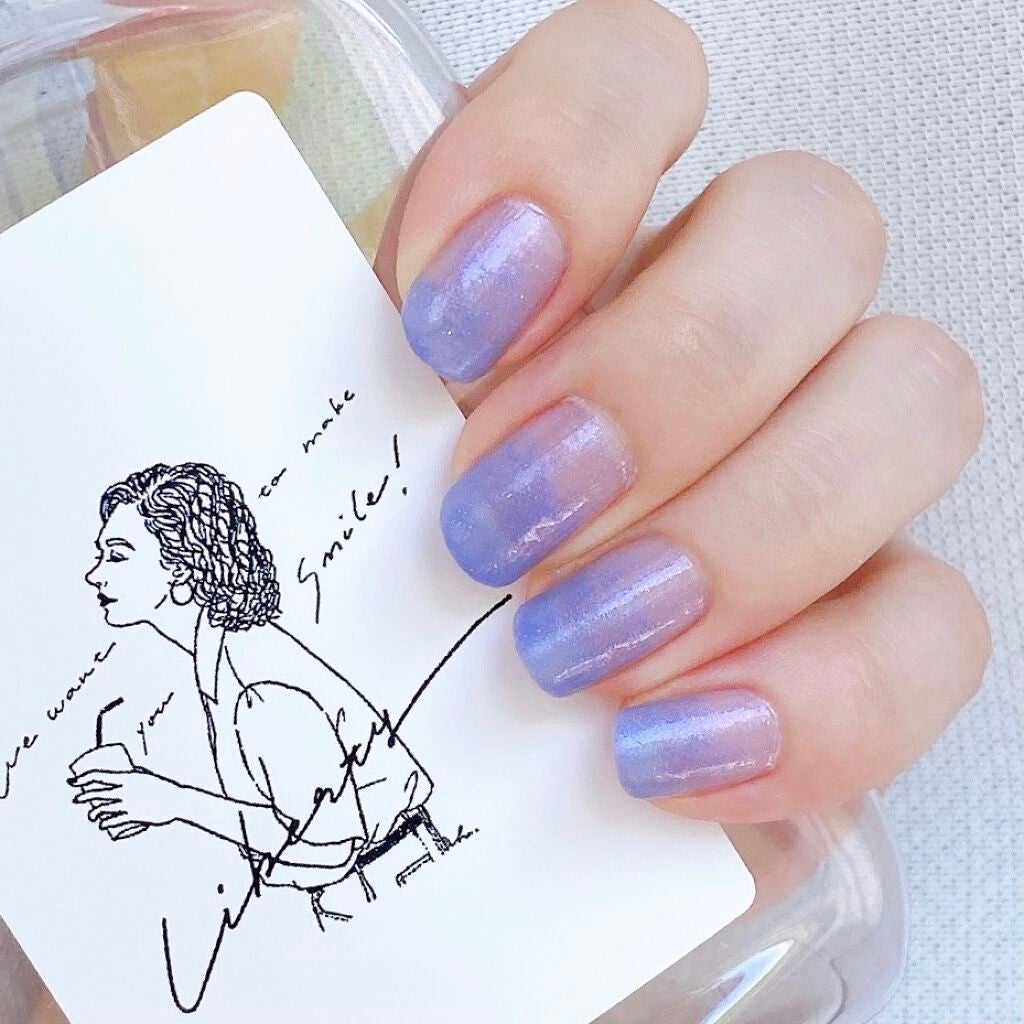 we want
you
to make
smile!
Liberty